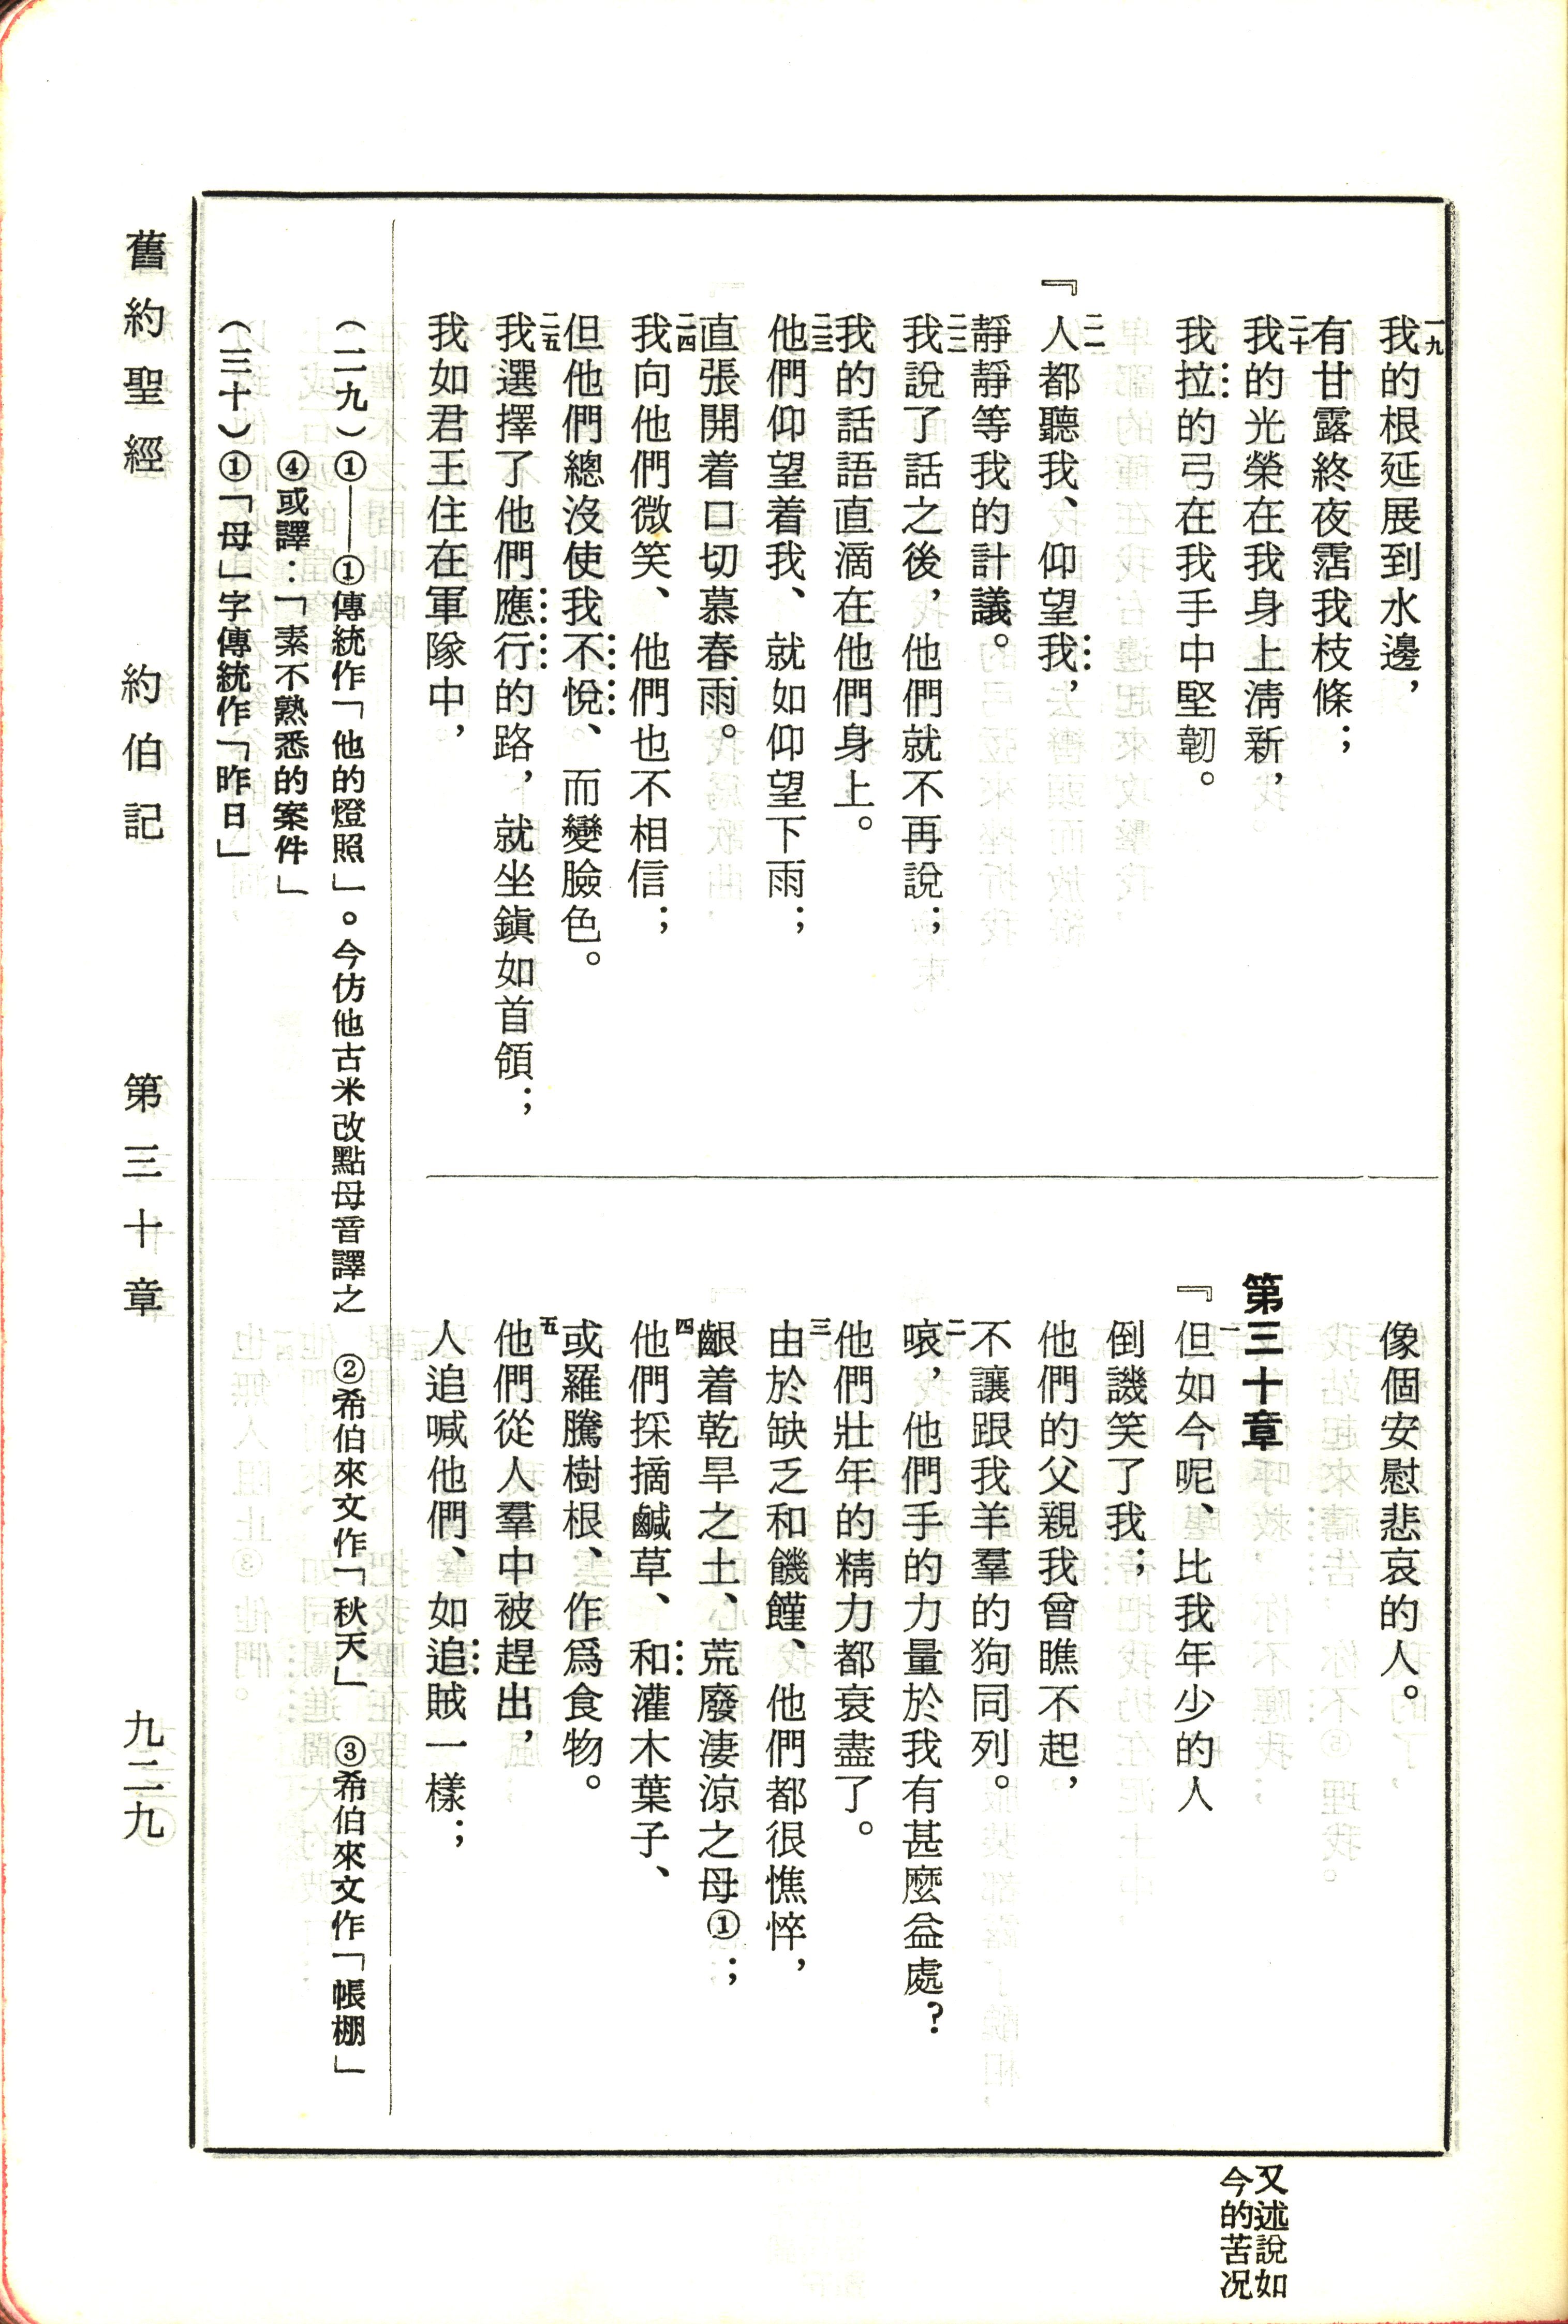 一九我的根延展到水邊，
有甘露終夜霑我枝條；
二十我的光榮在我身上淸新，
我拉的弓在我手中堅韌。
『二一人都聽我、仰望我，
靜靜等我的計議。
二二我說了話之後，他們就不再說；
我的話語直滴在他們身上。
二三他們仰望着我、就如仰望下雨；
直張開着口切慕春雨。
二四我向他們微笑、他們也不相信；
但他們總沒使我不悅、而變臉色。
二五我選擇了他們應行的路，就坐鎭如首領；
我如君王住在軍隊中，
像個安慰悲哀的人。
第三十章
『一但如今呢、比我年少的人
倒譏笑了我；
他們的父親我曾瞧不起，
不讓跟我羊羣的狗同列。
二哀，他們手的力量於我有甚麼益處？
他們壯年的精力都衰盡了。
三由於缺乏和饑饉、他們都很憔悴，
齦着乾旱之土、荒廢淒涼之母①；
四他們採摘鹹草、和灌木葉子、
或羅騰樹根、作爲食物。
五他們從人羣中被趕出，
人追喊他們、如追賊一樣；
又述說如
今的苦况
（二九）①——①傳統作「他的燈照」。今仿他古米改點母音譯之　②希伯來文作「秋天」　③希伯來文作「帳棚」
④或譯：「素不熟悉的案件」
（三十）①「母」字傳統作「昨日」
舊約聖經　約伯記　第三十章　九二九